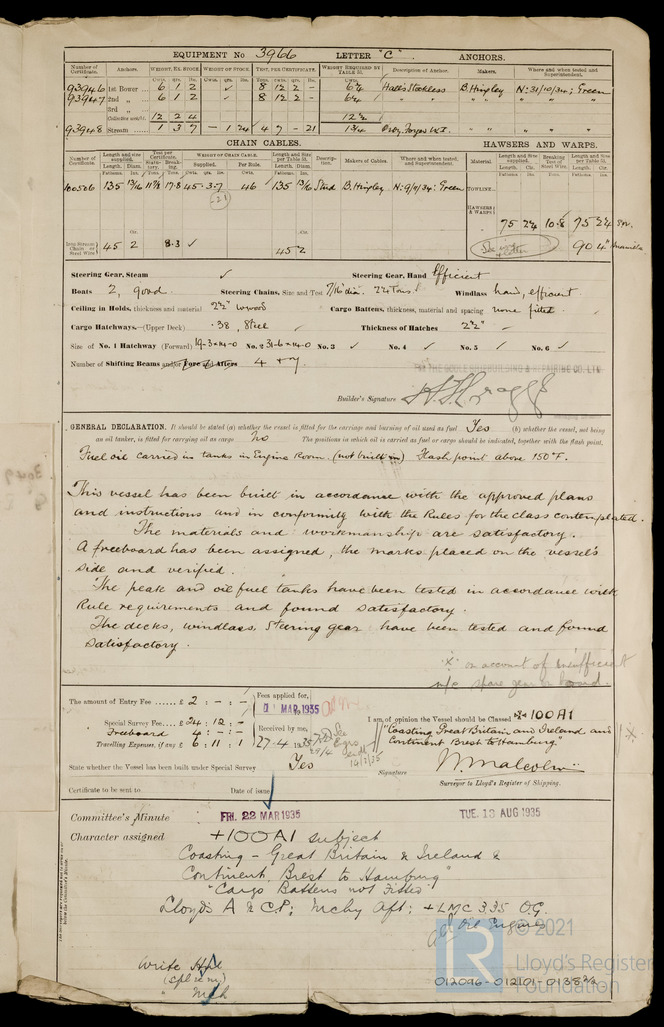 EQUIPMENT No 3966 LETTER "C" ANCHORS.
Number of Certificate. Anchors. WEIGHT, EX. STOCK. WEIGHT OF STOCK. TEST, PER CERTIFICATE. WEIGHT REQUIRED BY TABLE 31. Description of Anchor. Makers. Where and when tested and Superintendent.
93946 1st Bower 6 1 2 ✓ 8 12 2 - 6¼ Halls Stockless B. Hingley N: 31/10/34: Green
93947 2nd " 6 1 2 8 12 2 - 6¼ " " " " "
3rd "
Collective weight 12 2 4 12½
93948 Stream 1 3 7 - 1 24 4 7 - 21 1¾ " " " " "
CHAIN CABLES. HAWSERS AND WARPS.
Number of Certificate. Length and size supplied. Test per Certificate. WEIGHT OF CHAIN CABLE. Length and size per Table 31. Description. Makers of Cables. Where and when tested, and Superintendent. Material. Length and Size supplied. Breaking Test of Steel Wire. Length and Size per Table 31.
135 13/16 11⅞ 17·8 45-3-7 46 135 13/16 Stud B. Hingley N: 9/11/34: Green TOWLINE
HAWSERS & WARPS
75 2¼ 10·8 75 2¼
Iron Stream Chain or Steel Wire 45 2 8·3 ✓ 45 2 90 4"
Steering Gear, Steam ✓ Steering Gear, Hand Efficient
Boats 2, good. Steering Chains, Size and Test 7/16" dia. Windlass hand, efficient
Ceiling in Holds, thickness and material 2½" wood Cargo Battens, thickness, material and spacing none fitted.
Cargo Hatchways.—(Upper Deck) ·38 Steel Thickness of Hatches 2½"
Size of No. 1 Hatchway (Forward) 19-3 × 14-0 No. 2 31-6 × 14-0 No. 3 ✓ No. 4 ✓ No. 5 ✓ No. 6 ✓
Number of Shifting Beams and/or Fore and Afters 4 + 7
Builder's Signature
GENERAL DECLARATION. It should be stated (a) whether the vessel is fitted for the carriage and burning of oil used as fuel Yes (b) whether the vessel, not being
an oil tanker, is fitted for carrying oil as cargo No The positions in which oil is carried as fuel or cargo should be indicated, together with the flash point.
Fuel oil carried in tanks in Engine Room. (not built in) Flash point above 150°F.
This vessel has been built in accordance with the approved plans
and instructions and in conformity with the Rules for the class contemplated.
The materials and workmanship are satisfactory.
A freeboard has been assigned, the marks placed on the vessel's
side and verified.
The peak and oil fuel tanks have been tested in accordance with
Rule requirements and found satisfactory.
The decks, windlass, Steering gear have been tested and found
satisfactory.
* on account of insufficient
spare gear on board.
The amount of Entry Fee £ 2 : - : Fees applied for,
MAR 1935
Special Survey Fee £ 24 : 12 : - I am of opinion the Vessel should be Classed * +100A1
Freeboard 4 : - : - Received by me, "Coasting Great Britain and Ireland and
Travelling Expenses, if any £ 6 : 11 : 1 27.4.1935 Continent Brest to Hamburg"
State whether the Vessel has been built under Special Survey Yes Signature W. Malcolm
Surveyor to Lloyd's Register of Shipping.
Certificate to be sent to Date of issue
Committee's Minute FRI. 22 MAR 1935 TUE. 13 AUG 1935
Character assigned +100A1 subject
Coasting - Great Britain & Ireland &
Continent, Brest to Hamburg"
"Cargo Battens not Fitted"
Lloyd's A & CP; Mchy Aft; +LMC 3,35 O.G.
Oil Engines
Write
© 2021
Lloyd's Register
Foundation
012096-012101-0138 2/2